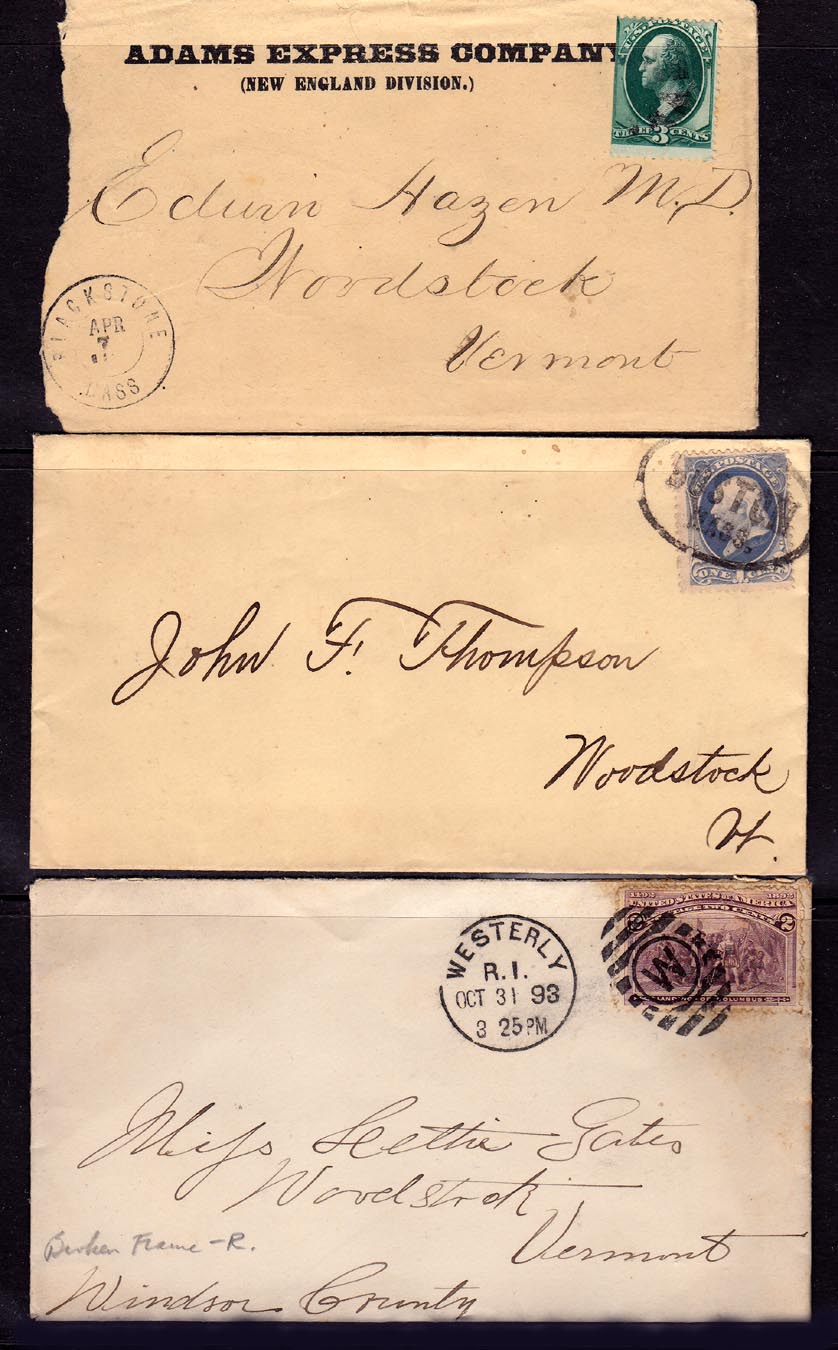 ADAMS EXPRESS COMPANY
(NEW ENGLAND DIVISION.)
U.S. POSTAGE
THREE 3 CENTS
Edwin Hazen M.D.
Woodstock
Vermont
BLACKSTONE
APR
7
MASS
U.S. POSTAGE
BOSTON
MASS.
ONE CENT
John F. Thompson
Woodstock
Vt.
1492 1892
UNITED STATES OF AMERICA
POSTAGE TWO CENTS
2 2
LANDING OF COLUMBUS
W
WESTERLY
R.I.
OCT 31 93
3 25 PM
Miss Hettie Gates
Woodstock
Vermont
Broken Frame - R.
Windsor County